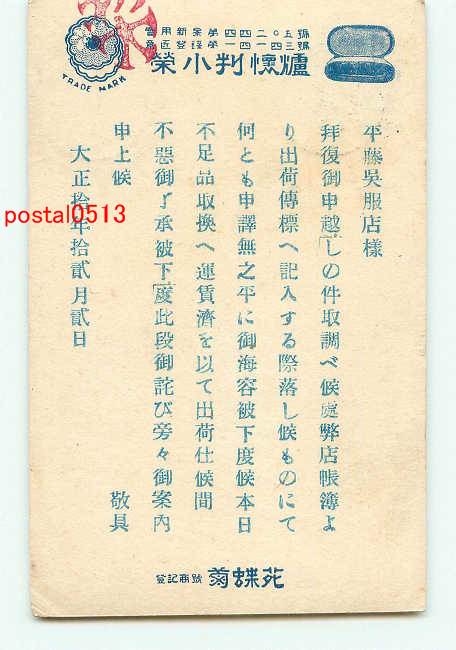 實用新案第四四二〇五號
意匠登録第一四一四三號
榮小判懷爐
TRADE MARK
平藤吳服店様
拜復御申越しの件取調べ候處弊店帳簿よ
り出荷傳標へ記入する際落し候ものにて
何とも申譯無之平に御海容被下度候本日
不足品取換へ運賃濟を以て出荷仕候間
不惡御了承被下度此段御詫び旁々御案内
申上候 敬具
大正拾年拾貳月貳日
登記商號 菊蝶苑
postal0513